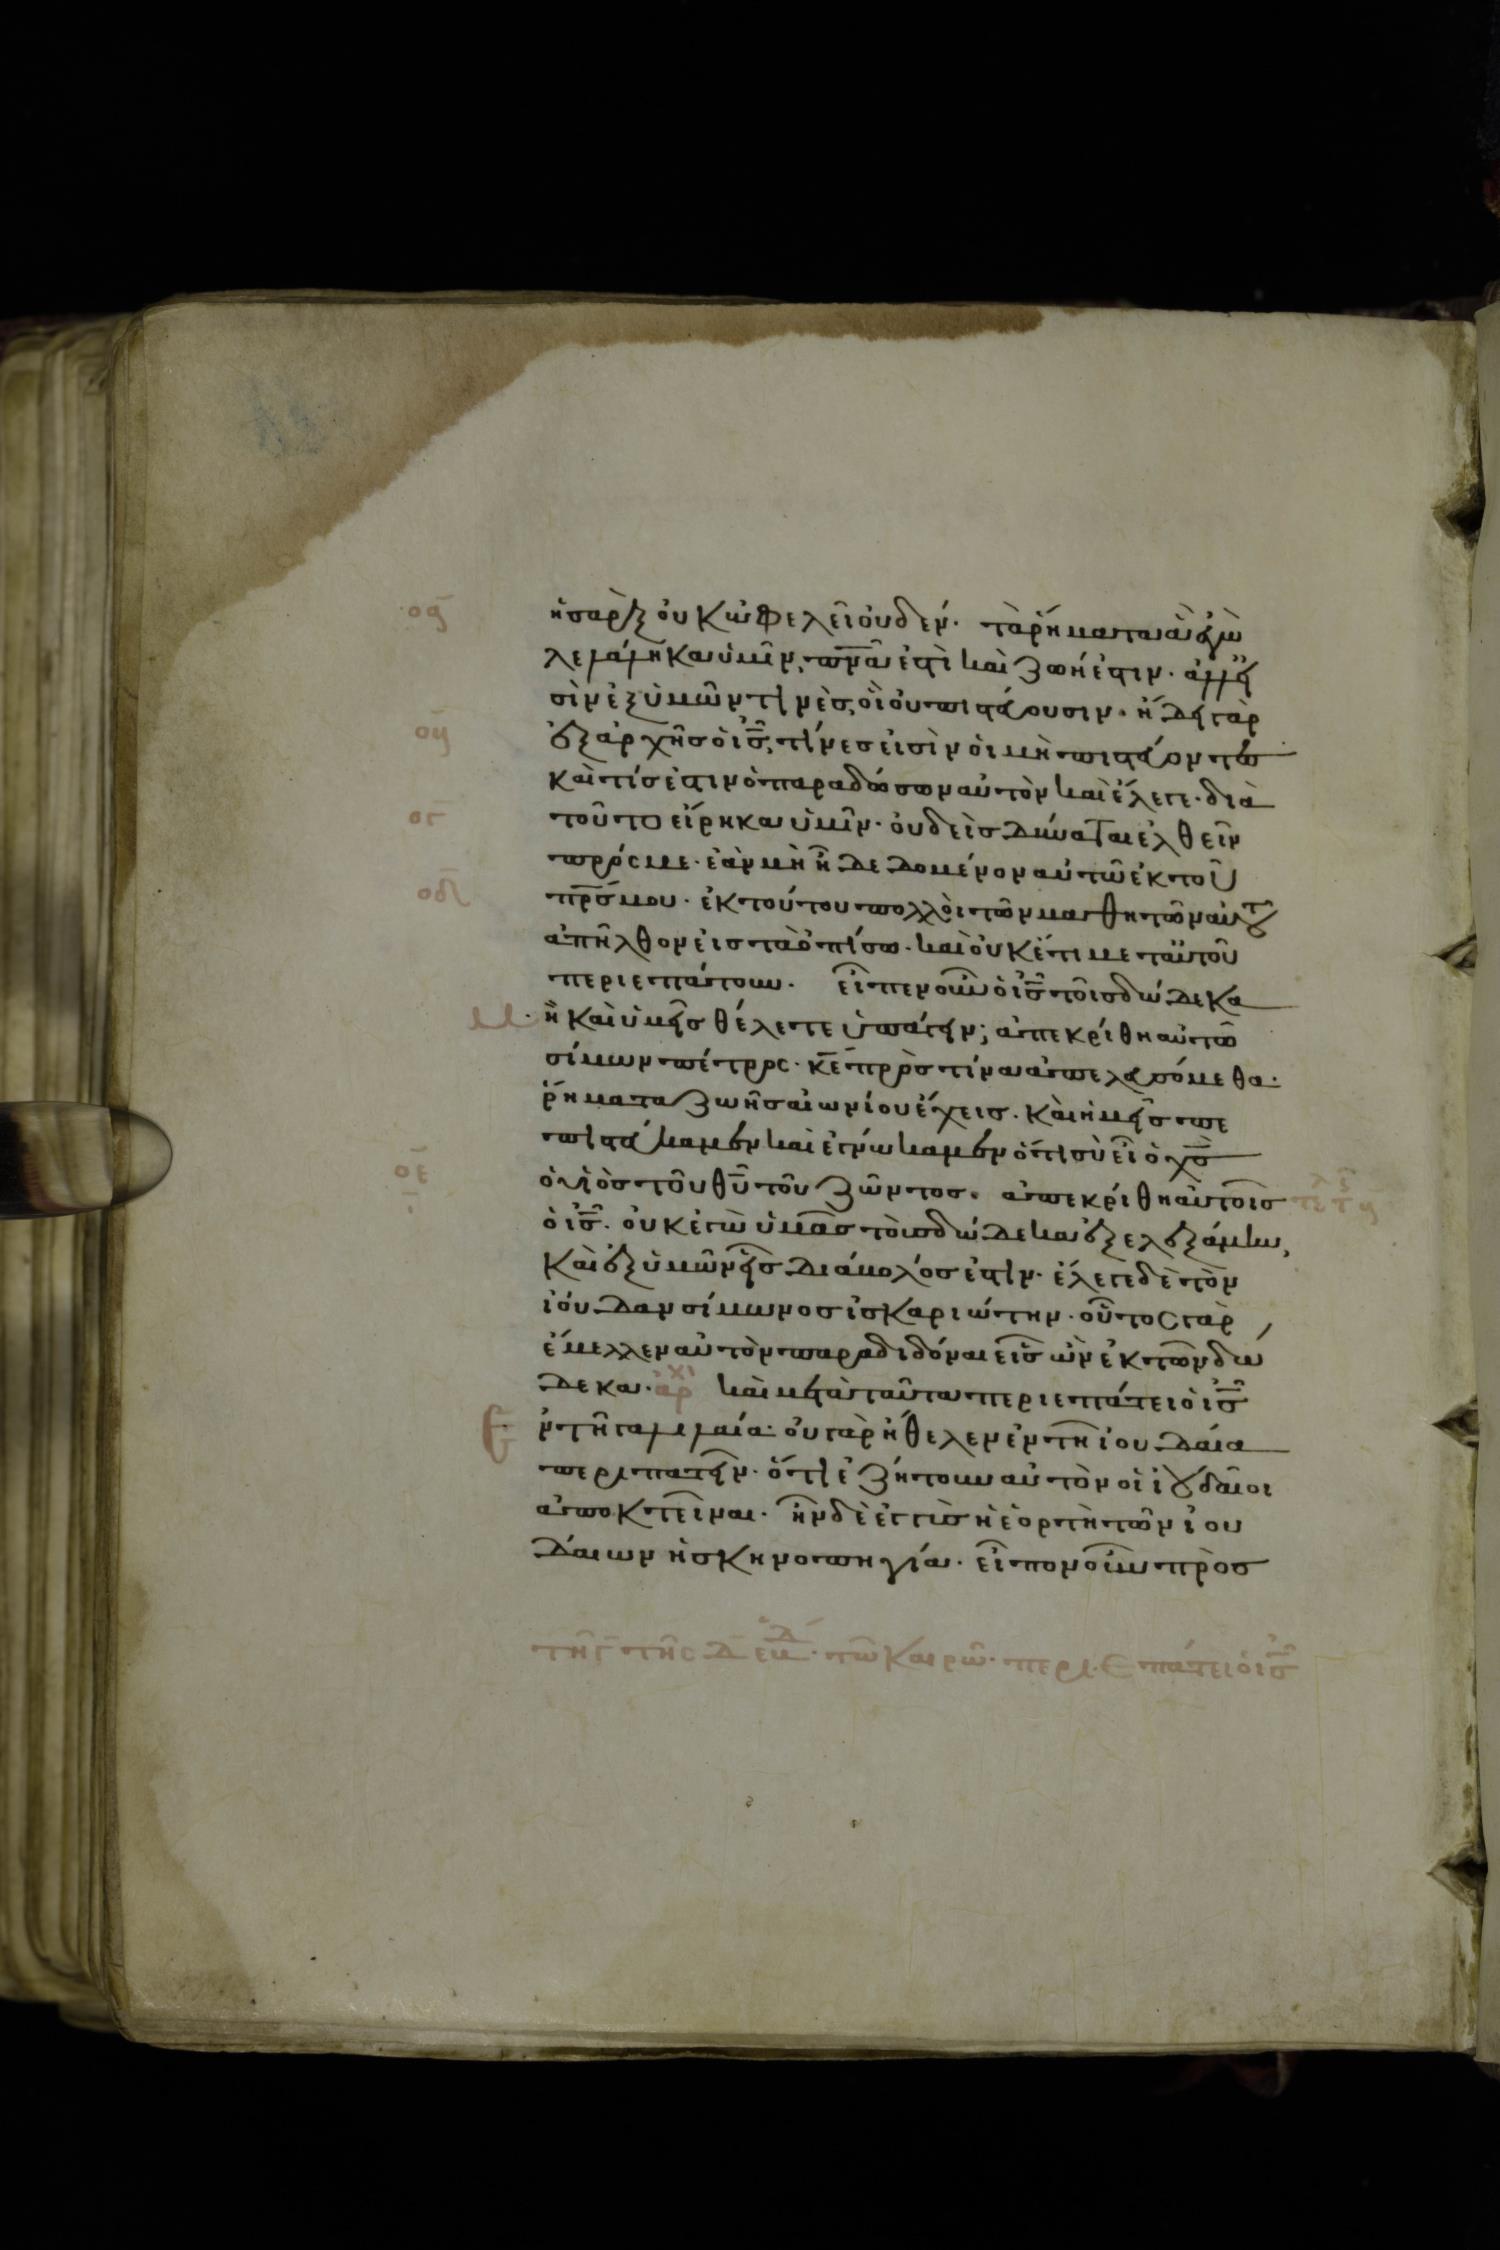 ἡ σὰρξ οὐκ ὠφελεῖ οὐδέν· τὰ ῥήματα ἃ ἐγὼ
λελάληκα ὑμῖν, πνᾶ ἐστὶ καὶ ζωή ἐστιν· ἀλλ' εἰ
σὶν ἐξ ὑμῶν τινὲς, οἳ οὐ πιστεύουσιν· ἤδει γὰρ
ἐξ ἀρχῆς ὁ ις, τίνες εἰσὶν οἱ μὴ πιστεύοντες
καὶ τίς ἐστιν ὁ παραδώσων αὐτὸν καὶ ἔλεγε· διὰ
τοῦτο εἴρηκα ὑμῖν· οὐδεὶς δύναται ἐλθεῖν
πρός με· ἐὰν μὴ ἦ δεδομένον αὐτῶ ἐκ τοῦ
πρς μου· ἐκ τούτου πολλοὶ τῶν μαθητῶν αὐτοῦ
ἀπῆλθον εἰς τὰ ὀπίσω· καὶ οὐκέτι μετ' αὐτοῦ
περιεπάτουν· εἶπεν οὖν ὁ ις τοῖς δώδεκα
μ ἢ καὶ ὑμεῖς θέλετε ὑπάγειν; ἀπεκρίθη αὐτῶ
σίμων πέτρος· κε πρὸς τίνα ἀπελευσόμεθα·
ῥήματα ζωῆς αἰωνίου ἔχεις· καὶ ἡμεῖς πε
πιστεύκαμεν καὶ ἐγνώκαμεν ὅτι σὺ εἶ ὁ χς
ὁ υἱὸς τοῦ θυ τοῦ ζῶντος· ἀπεκρίθη αὐτοῖς
ὁ ις· οὐκ ἐγὼ ὑμᾶς τοὺς δώδεκα ἐξελεξάμην,
καὶ ἐξ ὑμῶν εἷς διάβολός ἐστιν· ἔλεγε δὲ τὸν
ἰούδαν σίμωνος ἰσκαριώτην· οὗτος γὰρ
ἔμελλεν αὐτὸν παραδιδόναι εἷς ὢν ἐκ τῶν δώ
δεκα· ἀρχ καὶ μετὰ ταῦτα περιεπάτει ὁ ις
ἐν τῆ γαλιλαία· οὐ γὰρ ἤθελεν ἐν τῆ ἰουδαία
περιπατεῖν· ὅτι ἐζήτουν αὐτὸν οἱ ἰουδαῖοι
ἀποκτεῖναι· ἦν δὲ ἐγγὺς ἡ ἑορτὴ τῶν ἰου
δαίων ἡ σκηνοπηγία· εἶπον οὖν πρὸς
τῆ γ τῆς δ εβδ· τῶ καιρῶ· περιεπάτει ὁ ις